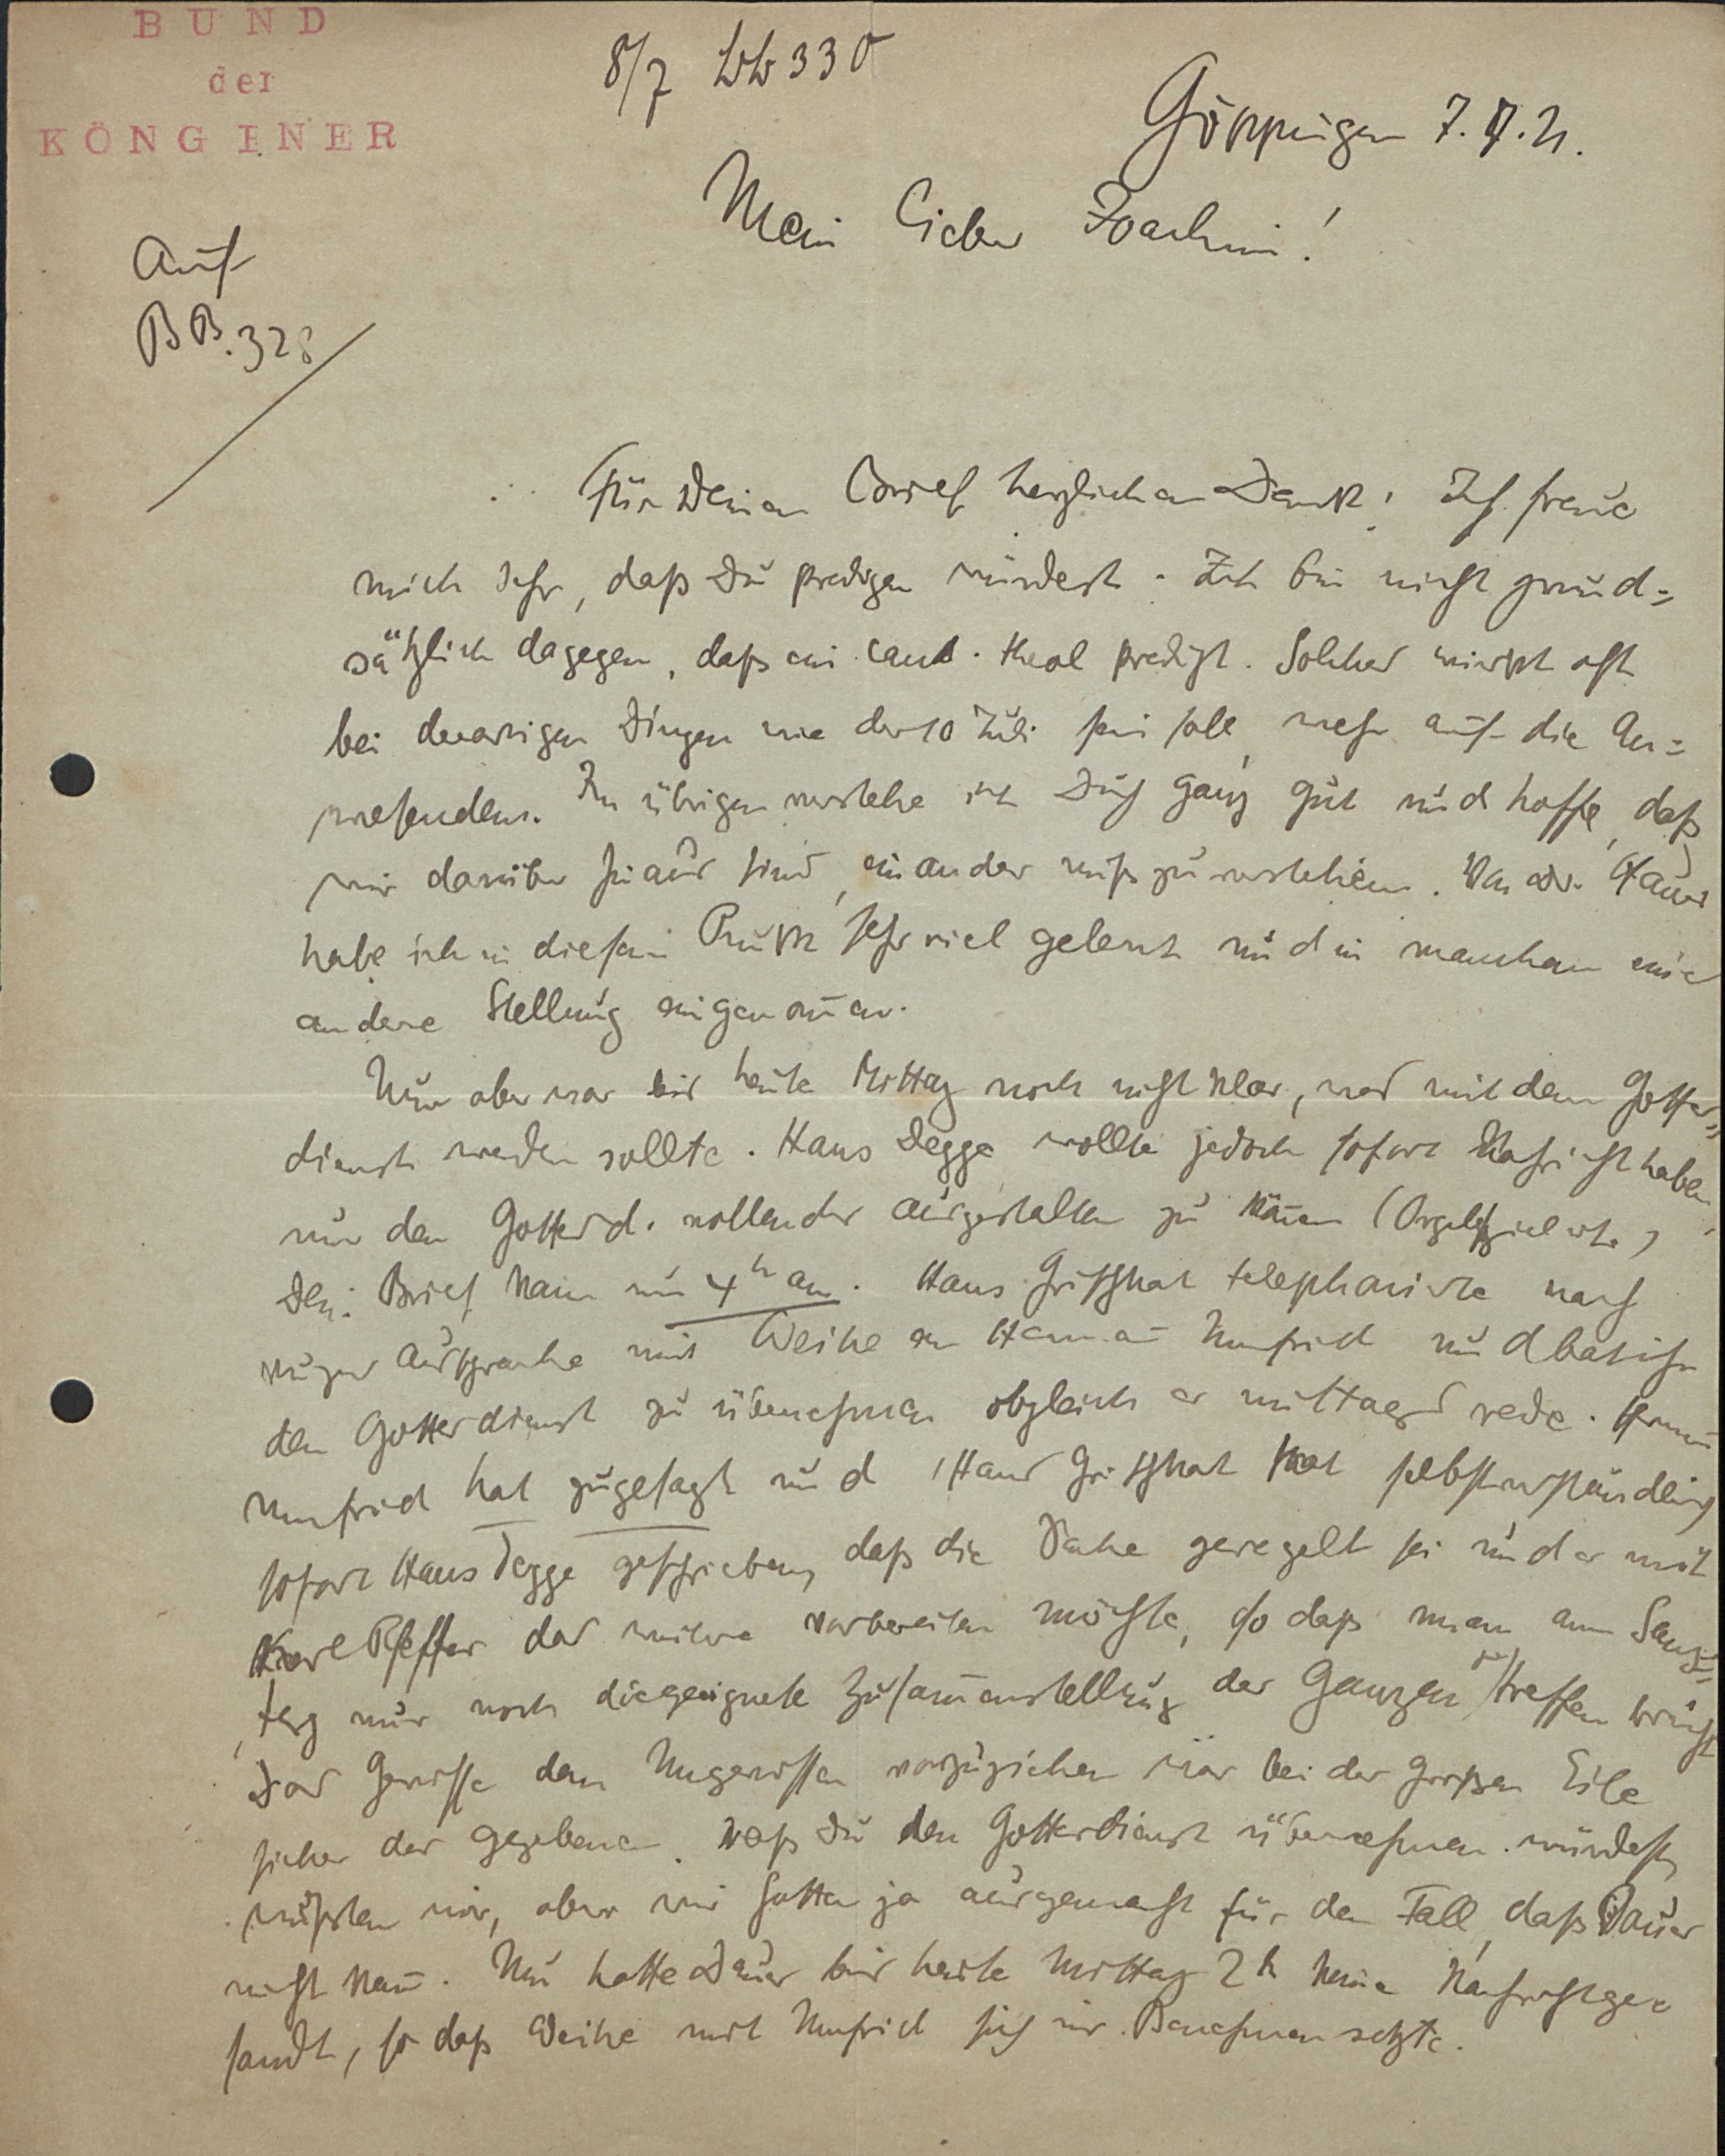 BUND
der
KÖNGINER
8/7 337
Göppingen 7.7.21.
Mein lieber Joachim!
Auf
BB.328
Für Deinen Brief herzlichen Dank! Ich freue
mich sehr, daß Du predigen würdest. Ich bin nicht grund=
sätzlich dagegen, daß ein cand. theol predigt. Solches wirkt oft
bei derartigen Dingen wie der 10 Juli sein soll, mehr auf die An=
wesenden. Im übrigen verstehe ich Dich ganz gut und hoffe, daß
wir darüber hinaus sind, einander mißzuverstehen. Von Dr. Hauer
habe ich in diesem Punkt sehr viel gelernt und in manchem eine
andere Stellung eingenom̄en.
Nun aber war bis heute Mittag noch nicht klar, was mit dem Gottes=
dienst werden sollte. Hans Degge wollte jedoch sofort Nachricht haben,
um den Gottesd. vollends ausgestalten zu kön̄en (Orgelspiel etc.)
Dein Brief kam um 4h an. Hans Grischkat telephonierte nach
kurzer Aussprache mit Weihe an Herman̄ Umfrid und bat ihn
den Gottesdienst zu übernehmen obgleich er mittags rede. Herman̄
Umfrid hat zugesagt und Hans Grischkat hat selbstverständlich
sofort Hans Degge geschrieben, daß die Sache geregelt sei und er mit
Karl Pfeffer das weitere vorbereiten möchte, so daß man am Sams=
tag nur noch die geeignete Zusam̄enstellung des Ganzen zu treffen braucht
Das Gewisse dem Ungewissen vorzuziehen war bei der großen Eile
sicher das gegebene. Daß Du den Gottesdienst übernehmen würdest,
wußten wir, aber wir hatten ja ausgemacht für den Fall, daß Hauer
nicht kam̄. Nun hatte Hauer bis heute Mittag 2h keine Nachricht ge=
sandt, so daß Weihe mit Umfrid sich ins Benehmen setzte.